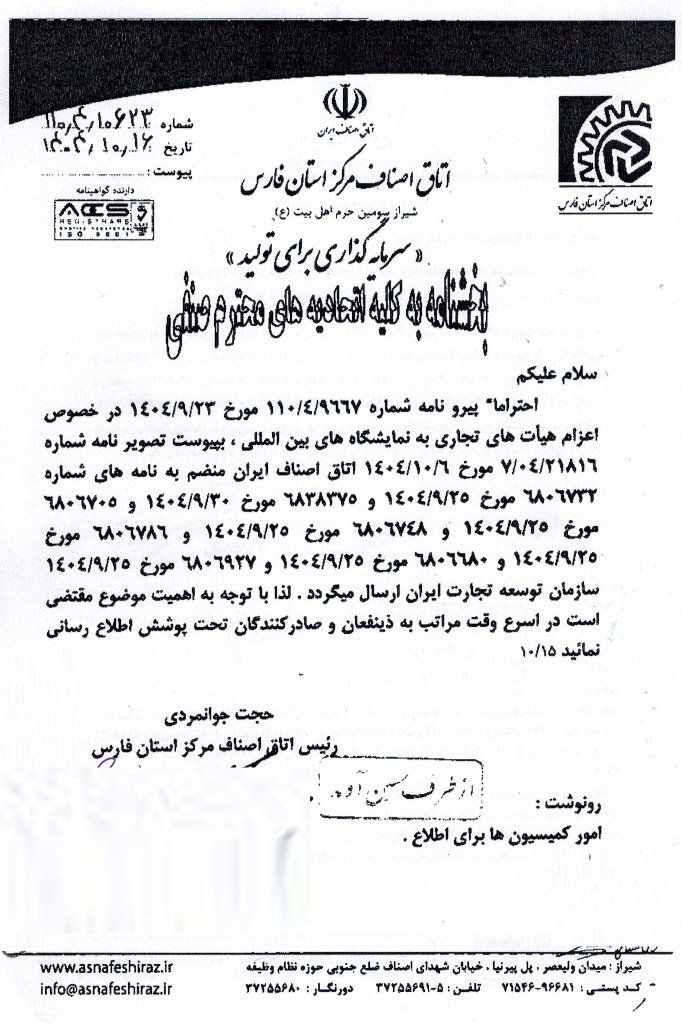 اتاق اصناف ایران
شماره ۱۱۰,۴,۱۰۶۲۳
تاریخ ۱۴۰۴,۱۰,۱۶
پیوست :
دارنده گواهینامه
ACS
REGISTRARS
ISO 9001
اتاق اصناف مرکز استان فارس
شیراز سومین حرم اهل بیت (ع)
« سرمایه گذاری برای تولید »
اتاق اصناف مرکز استان فارس
بخشنامه به کلیه اتحادیه های محترم صنفی
سلام علیکم
احتراما" پیرو نامه شماره ۱۱۰/٤/۹٦٦۷ مورخ ۱٤۰٤/۹/۲۳ در خصوص
اعزام هیأت های تجاری به نمایشگاه های بین المللی ، بپیوست تصویر نامه شماره
۷/۰٤/۲۱۸۱٦ مورخ ۱٤۰٤/۱۰/٦ اتاق اصناف ایران منضم به نامه های شماره
٦۸۰٦۷۳۲ مورخ ۱٤۰٤/۹/۲۵ و ٦۸۳۸۳۷۵ مورخ ۱٤۰٤/۹/۳۰ و ٦۸۰٦۷۰۵
مورخ ۱٤۰٤/۹/۲۵ و ٦۸۰٦۷٤۸ مورخ ۱٤۰٤/۹/۲۵ و ٦۸۰٦۷۸٦ مورخ
۱٤۰٤/۹/۲۵ و ٦۸۰٦٦۸۰ مورخ ۱٤۰٤/۹/۲۵ و ٦۸۰٦۹۲۷ مورخ ۱٤۰٤/۹/۲۵
سازمان توسعه تجارت ایران ارسال میگردد . لذا با توجه به اهمیت موضوع مقتضی
است در اسرع وقت مراتب به ذینفعان و صادرکنندگان تحت پوشش اطلاع رسانی
نمائید ۱۰/۱۵
حجت جوانمردی
رئیس اتاق اصناف مرکز استان فارس
از طرف
رونوشت :
امور کمیسیون ها برای اطلاع .
شیراز : میدان ولیعصر ، پل پیرنیا ، خیابان شهدای اصناف ضلع جنوبی حوزه نظام وظیفه
www.asnafeshiraz.ir
کد پستی : ۹۶۶۸۱-۷۱۵۴۶ تلفن : ۵-۳۷۲۵۵۶۹۱ دورنگار : ۳۷۲۵۵۶۸۰
info@asnafeshiraz.ir